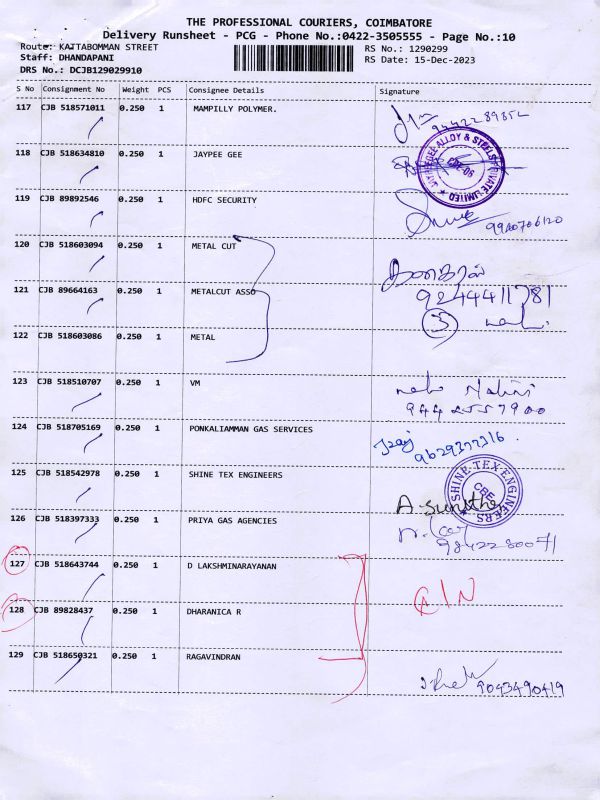 THE PROFESSIONAL COURIERS, COIMBATORE
Delivery Runsheet - PCG - Phone No.:0422-3505555 - Page No.:10
Route: KATTABOMMAN STREET RS No.: 1290299
Staff: DHANDAPANI RS Date: 15-Dec-2023
DRS No.: DCJB129029910
S No Consignment No Weight PCS Consignee Details Signature
117 CJB 518571011 0.250 1 MAMPILLY POLYMER.
118 CJB 518634810 0.250 1 JAYPEE GEE
119 CJB 89892546 0.250 1 HDFC SECURITY
9940706120
120 CJB 518603094 0.250 1 METAL CUT
121 CJB 89664163 0.250 1 METALCUT ASSO
9244411781
122 CJB 518603086 0.250 1 METAL
123 CJB 518510707 0.250 1 VM
124 CJB 518705169 0.250 1 PONKALIAMMAN GAS SERVICES
125 CJB 518542978 0.250 1 SHINE TEX ENGINEERS
SHINE-TEX-ENGINEERS
CBE
126 CJB 518397333 0.250 1 PRIYA GAS AGENCIES
127 CJB 518643744 0.250 1 D LAKSHMINARAYANAN
128 CJB 89828437 0.250 1 DHARANICA R
129 CJB 518650321 0.250 1 RAGAVINDRAN
9043490419